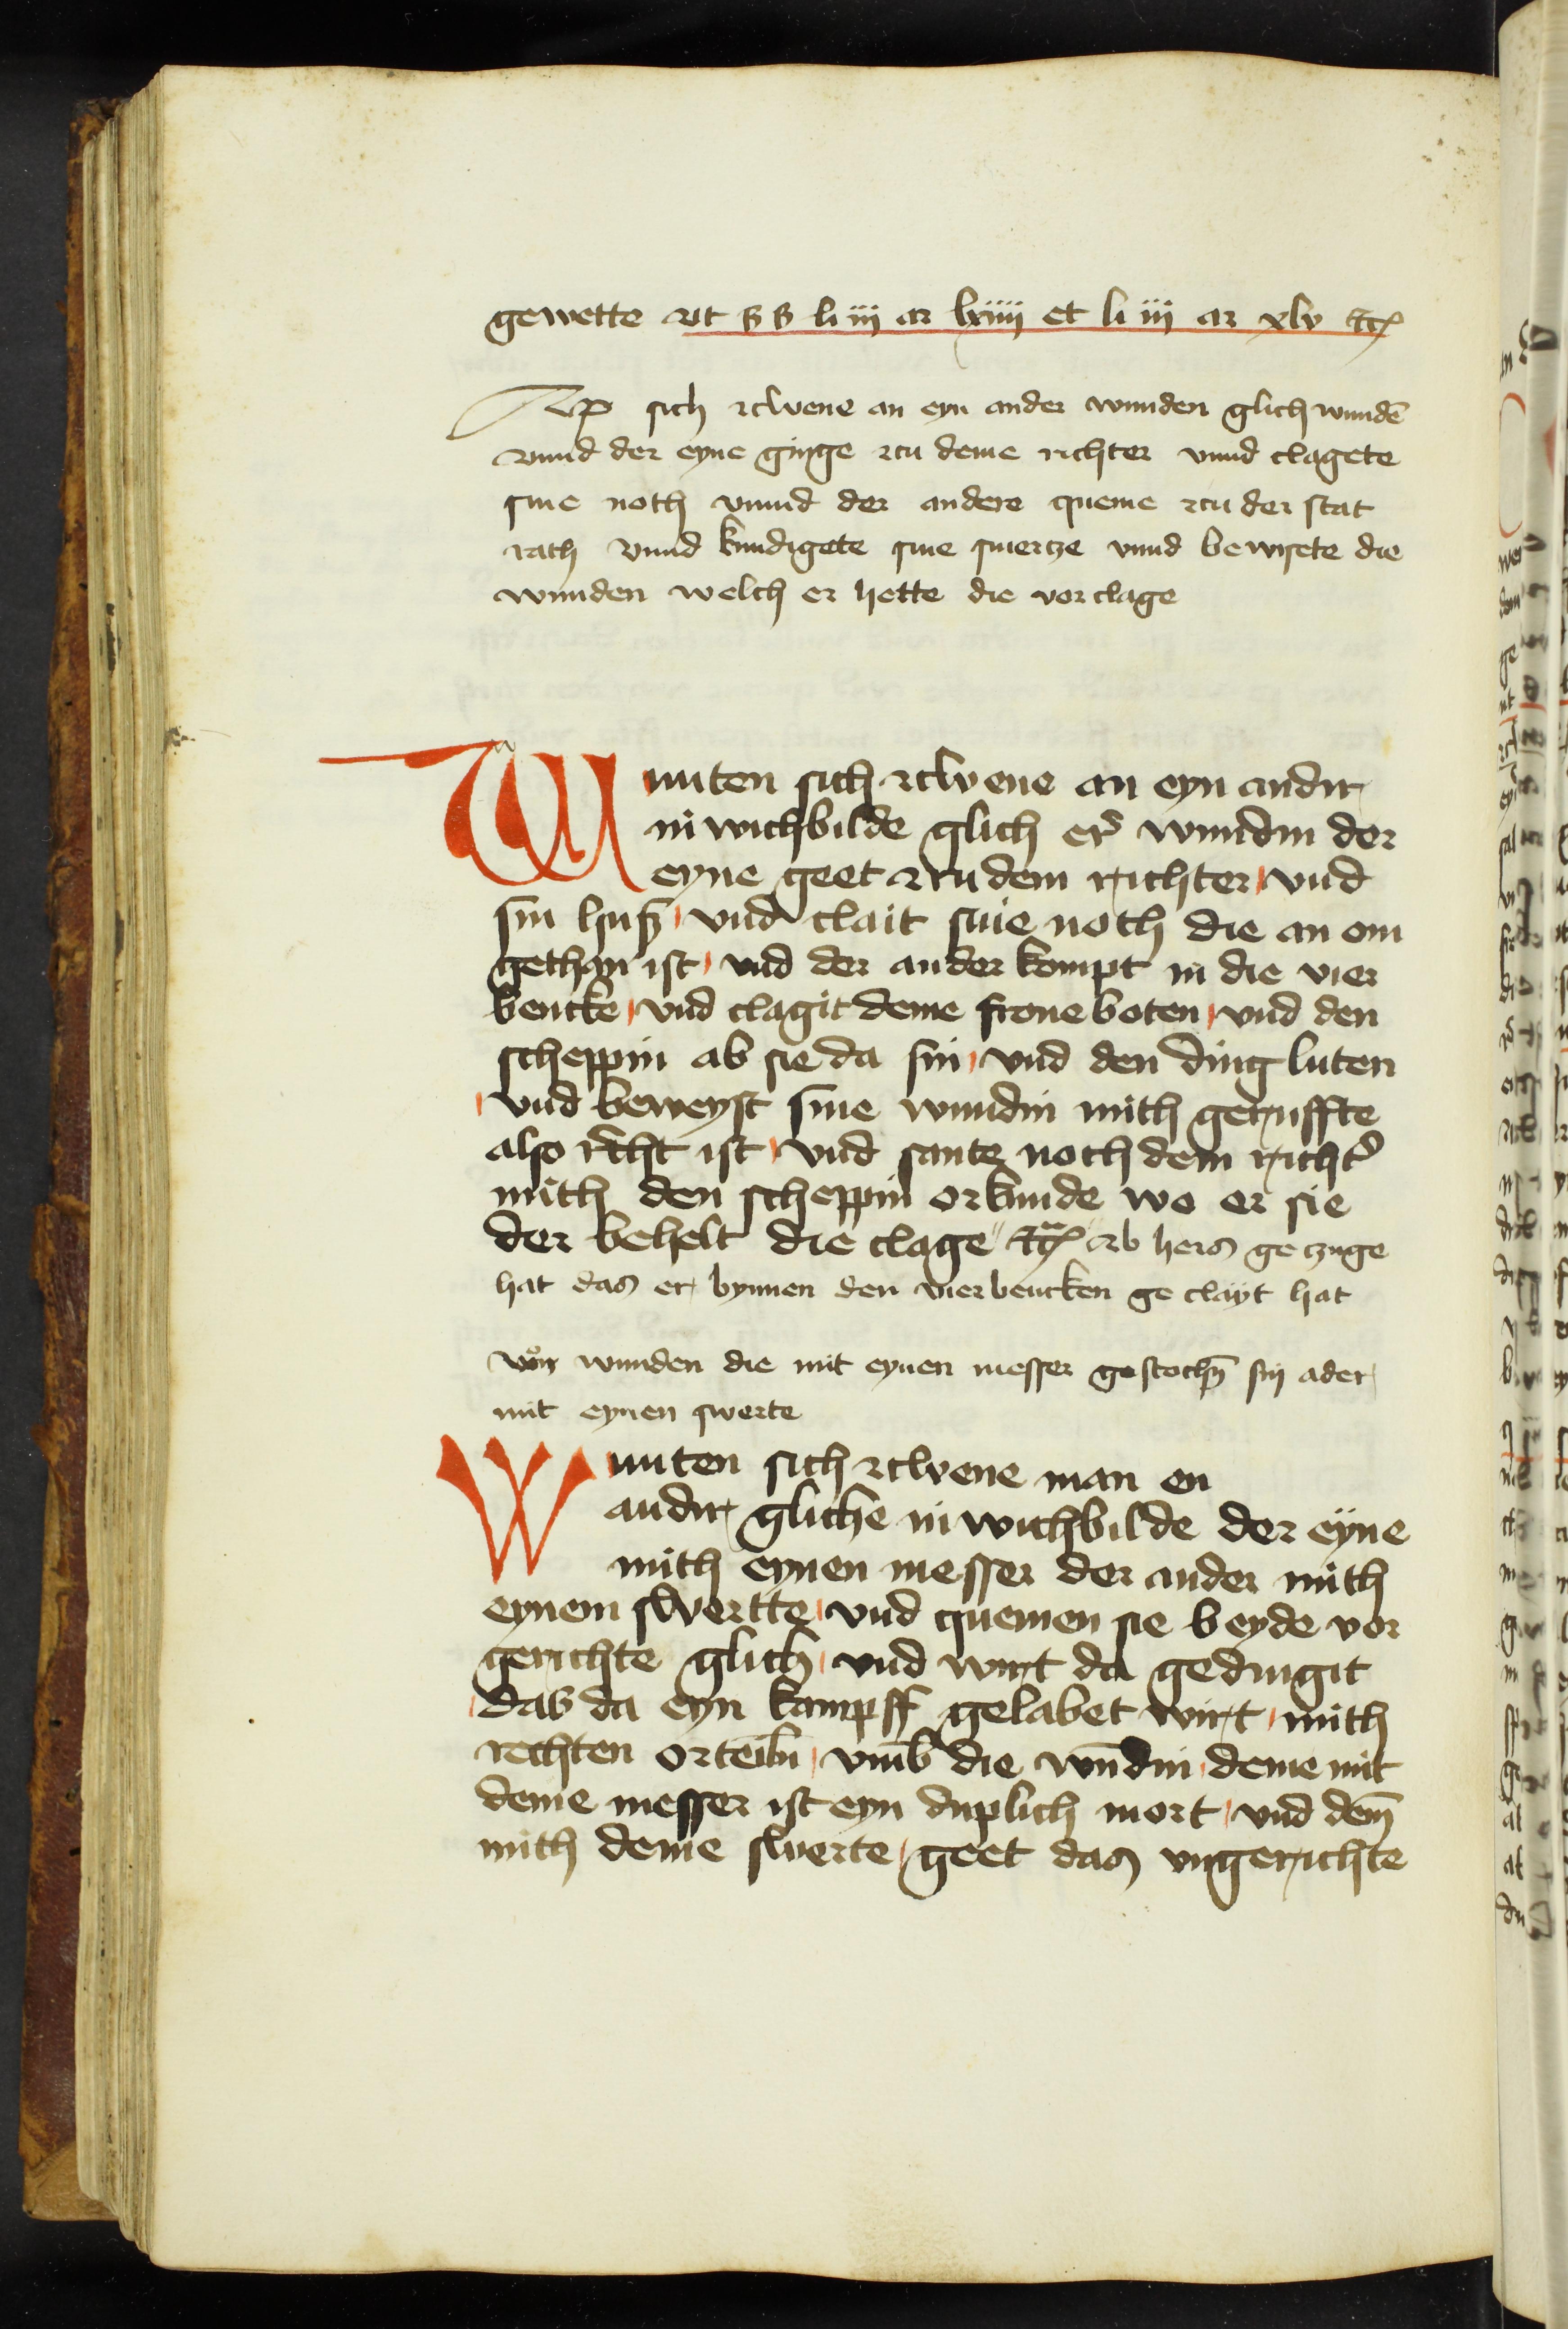 gewette vt ß ß li iij ar lxiiij et li iij ar xlv etc
Ap sich zcwene an eyn ander wunden glich wundē
vnnd der eyne ginge zcu deme richter vnnd clagete
sine noth vnnd der andere queme zcu der stat
rath vnnd kundigete sine smertze vnnd bewisete die
wunden welch er hette die vorclage
Wunten sich zcwene an eyn andir
in wichbilde glich er wundin der
eyne geet zcu dem richter vnd
sin huß vnd clait sine noth die an om
gethan ist vnd der ander kompt in die vier
bencke vnd clagit deme frone boten vnd den
scheppin ab sie da sin vnd den ding luten
vnd beweyst sine wundin mith geruffte
also recht ist vnd sante noch dem richt̄
mith den scheppin orkunde wo er sie
der behelt die clage etc ab hers ge czuge
hat das er bynnen den vierbencken ge clayt hat
von wunden die mit eynen messer gestochn̄ sin ader
mit eynen swerte
Wunten sich zcwene man en
andir gliche in wichbilde der eyne
mith eynen messer der ander mith
eynem swertte vnd quemen sie beyde vor
gerichte glich vnd wirt da gedingit
das da eyn kampff gelabet wirt mith
rechten orteiln vmb die wn̄din deme mit
deme messer ist eyn duplich mort vnd dem̄
mith deme swerte geet das vngerichte